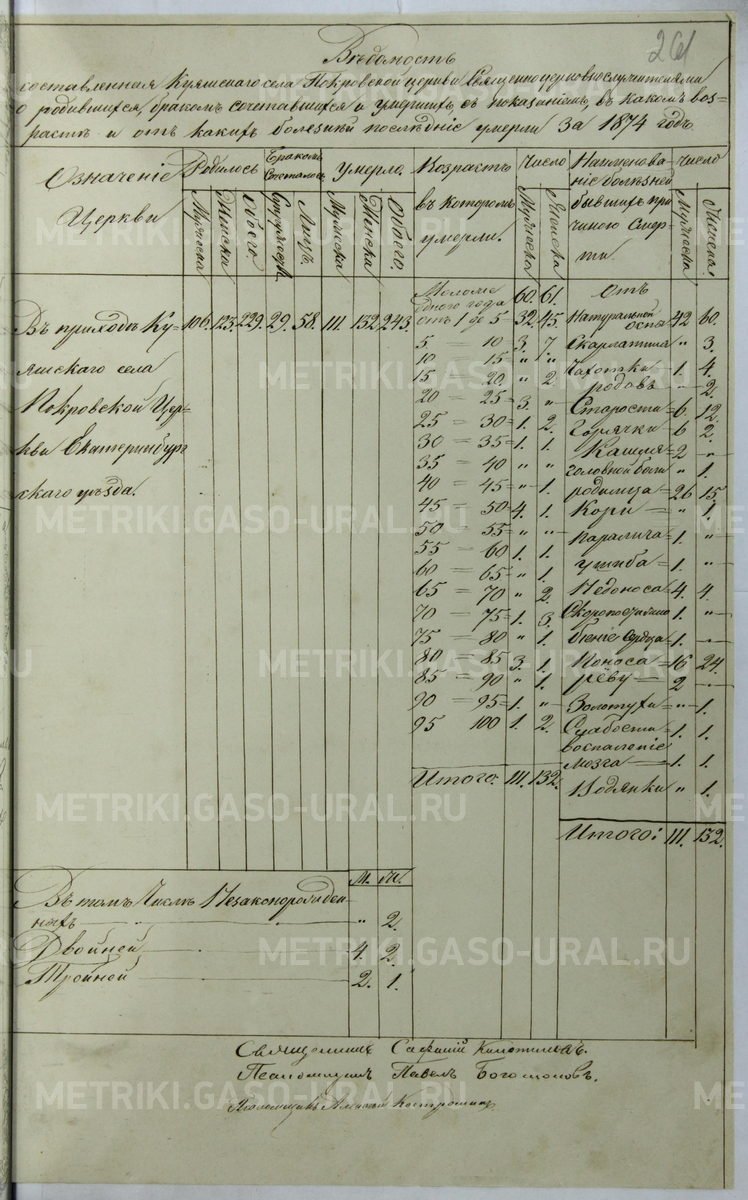 261
Вѣдомость
составленная Куяшскаго села Покровской церкви Священноцерковнослужителями
о родившихся, бракомъ сочетавшихся и умершихъ, съ показаніемъ, въ какомъ воз-
растѣ и отъ какихъ болезней послѣдніе умерли за 1874 годъ
Означеніе Церкви
Родилось
Мужеска
Женска
Обоего.
Бракомъ Сочеталось
Супружествъ.
Лицъ.
Умерло.
Мужеска
Женска
Обоего.
Возрастъ въ которомъ умерли.
Число
Мужеска
Женска
Наименова-
ніе болѣзней
бывшихъ при-
чиною Смер-
ти.
число
Мужеска
Женска
Въ приходѣ Ку- 106. 123. 229. 29. 58. 111. 132. 243.
яшскаго села
Покровской Цер-
кви Екатеринбург
скаго уѣзда.
Моложе
одного года 60. 61.
отъ 1 до 5 32. 45.
5 = 10 3. 7.
10 15 " "
15 20 " 2.
20 = 25 3. "
25 = 30 1. 2.
30 = 35 1. 1.
35 = 40 " "
40 = 45 " 1.
45 = 50 4. 1.
50 = 55 " "
55 = 60 1. 1.
60 = 65 " 1.
65 = 70 " 2.
70 = 75 1. 3.
75 = 80 " 1.
80 = 85 3. 1.
85 = 90 " 1.
90 = 95 1. "
95 100 1. 2.
Итого. 111. 132.
Отъ
Натуральной
оспы 42 60.
Скарлатина " 3.
Чахотки 1. 4.
родовъ " 2.
Старости 6. 12.
Горячки 6 2.
Кашля 2 "
головной боли " 1.
родимца 26 15.
Кори " 1.
Паралича 1. "
ушиба 1. "
Недоноса 4. 4.
Скоропостижно 1. "
біеніе Сердца 1. "
Поноса 16 24.
реву 2 "
Золотухи " 1.
Слабости 1. 1.
воспаленіе
мозга 1. 1.
Водянки " 1.
Итого: 111. 132.
М. Ж.
Въ томъ Числѣ Незаконорожден-
ныхъ " 2.
Двойней 4. 2.
Тройной 2. 1.
Священникъ
Псаломщикъ Павелъ Богомоловъ.
Псаломщикъ Костромин
METRIKI.GASO-URAL.RU